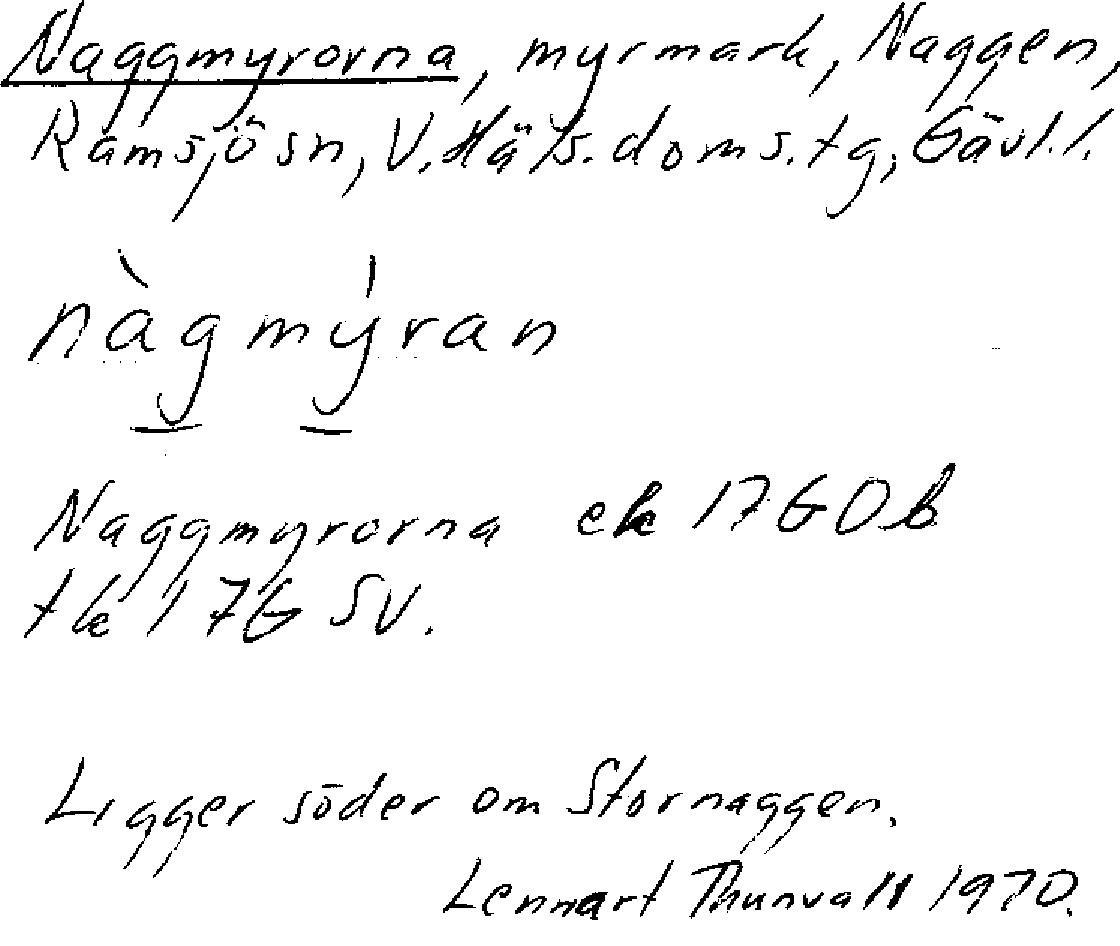 Naggmyrorna, myrmark, Naggen,
Ramsjösn, V. Häls. doms. tg, Gävl. l.
nàgmýran
Naggmyrorna ek 17G0b
tk 17G SV.
Ligger söder om Stornaggen.
Lennart Thunvall 1970.